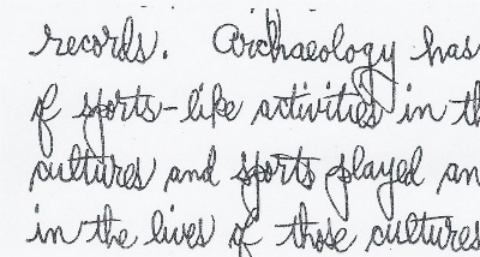 records. Archaeology has
of sports-like activities in th
cultures and sports played an
in the lives of those cultures